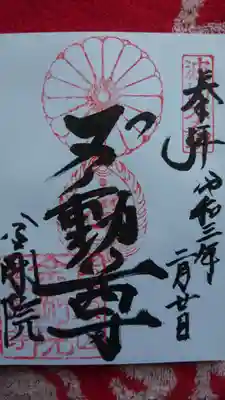 奉拝
令和三年
二月廿日
不動尊
金剛院